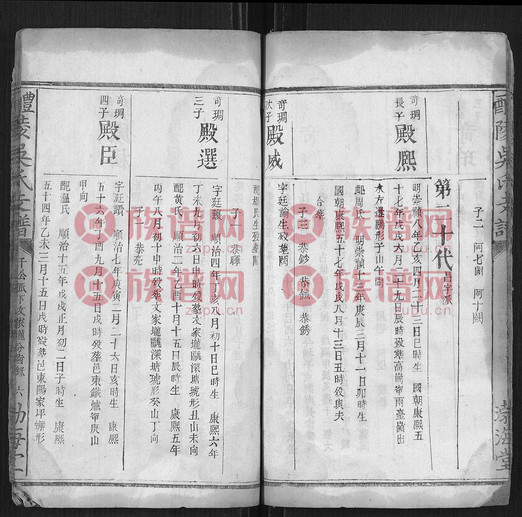 醴陵吳氏支譜
渤海堂
子二 阿七闕 阿十闕
第二十代
奇珮長子 殿熙
明崇禎八年乙亥四月二十三日巳時生 國朝康熙五
十七年戊戌六月二十九日辰時歿葬高崗
水方邊鵝形子山午向
配周氏 明崇禎十三年庚辰三月十一日卯時生
國朝康熙五十七年戊戌八月十三日丑時歿與夫
合葬
子三 恭鈔 恭 恭銹
奇珮次子 殿威
字廷諭生歿葬闕
配 氏生歿葬闕
子一 恭
奇珮三子 殿選
字廷 順治四年丁亥八月初十日丑時生 康熙六年
丁未九月初九日 時歿葬文家壠鵝深塘琥形丑山未向
配黃氏 順治二年乙酉十月十五日辰時生 康熙五年
丙午八月初十申時歿葬文家壠鵝深塘琥形癸山丁向
子一 恭亮
奇珮四子 殿臣
字廷讚 順治七年庚寅二月二十六日亥時生 康熙
五十六年丁酉九月十五日戌時歿葬邑東鐵爐冲庚山
甲向
配溫氏 順治十五年戊戌正月初二日子時生 康熙
五十四年乙未三月十五日戌時歿葬邑東陽家坪獅形
醴陵吳氏支譜
六
渤海堂
族譜网
www.zupu.cn